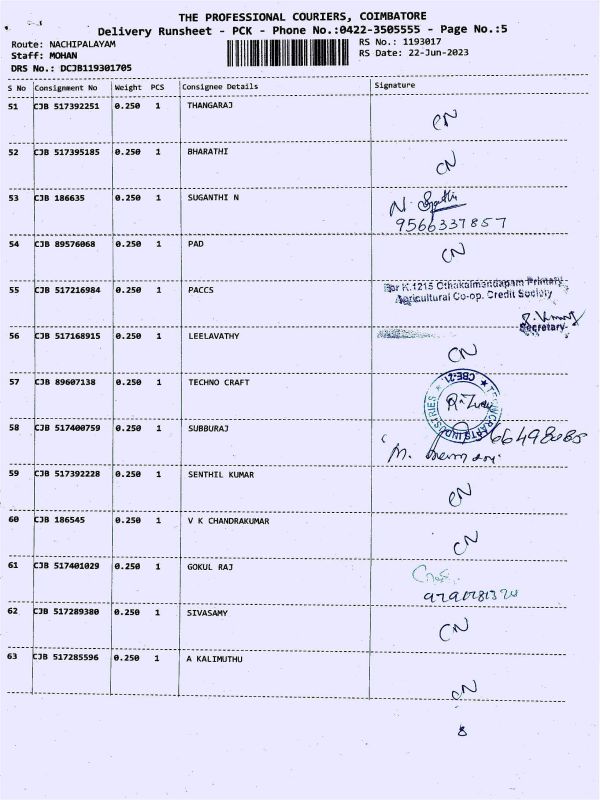 THE PROFESSIONAL COURIERS, COIMBATORE
Delivery Runsheet - PCK - Phone No.:0422-3505555 - Page No.:5
Route: NACHIPALAYAM
RS No.: 1193017
Staff: MOHAN
RS Date: 22-Jun-2023
DRS No.: DCJB119301705
S No Consignment No Weight PCS Consignee Details Signature
51 CJB 517392251 0.250 1 THANGARAJ
CN
52 CJB 517395185 0.250 1 BHARATHI
CN
53 CJB 186635 0.250 1 SUGANTHI N
N.
9566337857
54 CJB 89576068 0.250 1 PAD
CN
55 CJB 517216984 0.250 1 PACCS
For K.1215 Othakalmandapam Primary
Agricultural Co-op. Credit Society
Secretary
56 CJB 517168915 0.250 1 LEELAVATHY
CN
57 CJB 89607138 0.250 1 TECHNO CRAFT
CBE-21
INDUSTRIES
58 CJB 517400759 0.250 1 SUBBURAJ
M.
59 CJB 517392228 0.250 1 SENTHIL KUMAR
CN
60 CJB 186545 0.250 1 V K CHANDRAKUMAR
CN
61 CJB 517401029 0.250 1 GOKUL RAJ
62 CJB 517289380 0.250 1 SIVASAMY
CN
63 CJB 517285596 0.250 1 A KALIMUTHU
CN
8